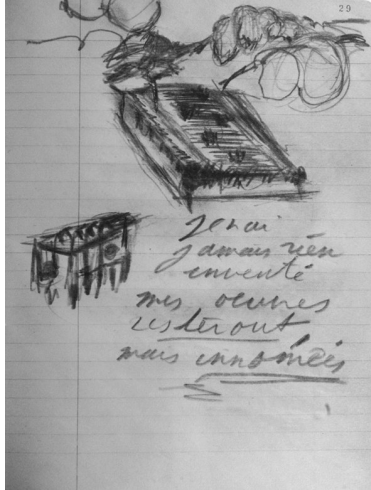 29
Je n'ai
jamais rien
inventé
mes oeuvres
resteront
mais innomées